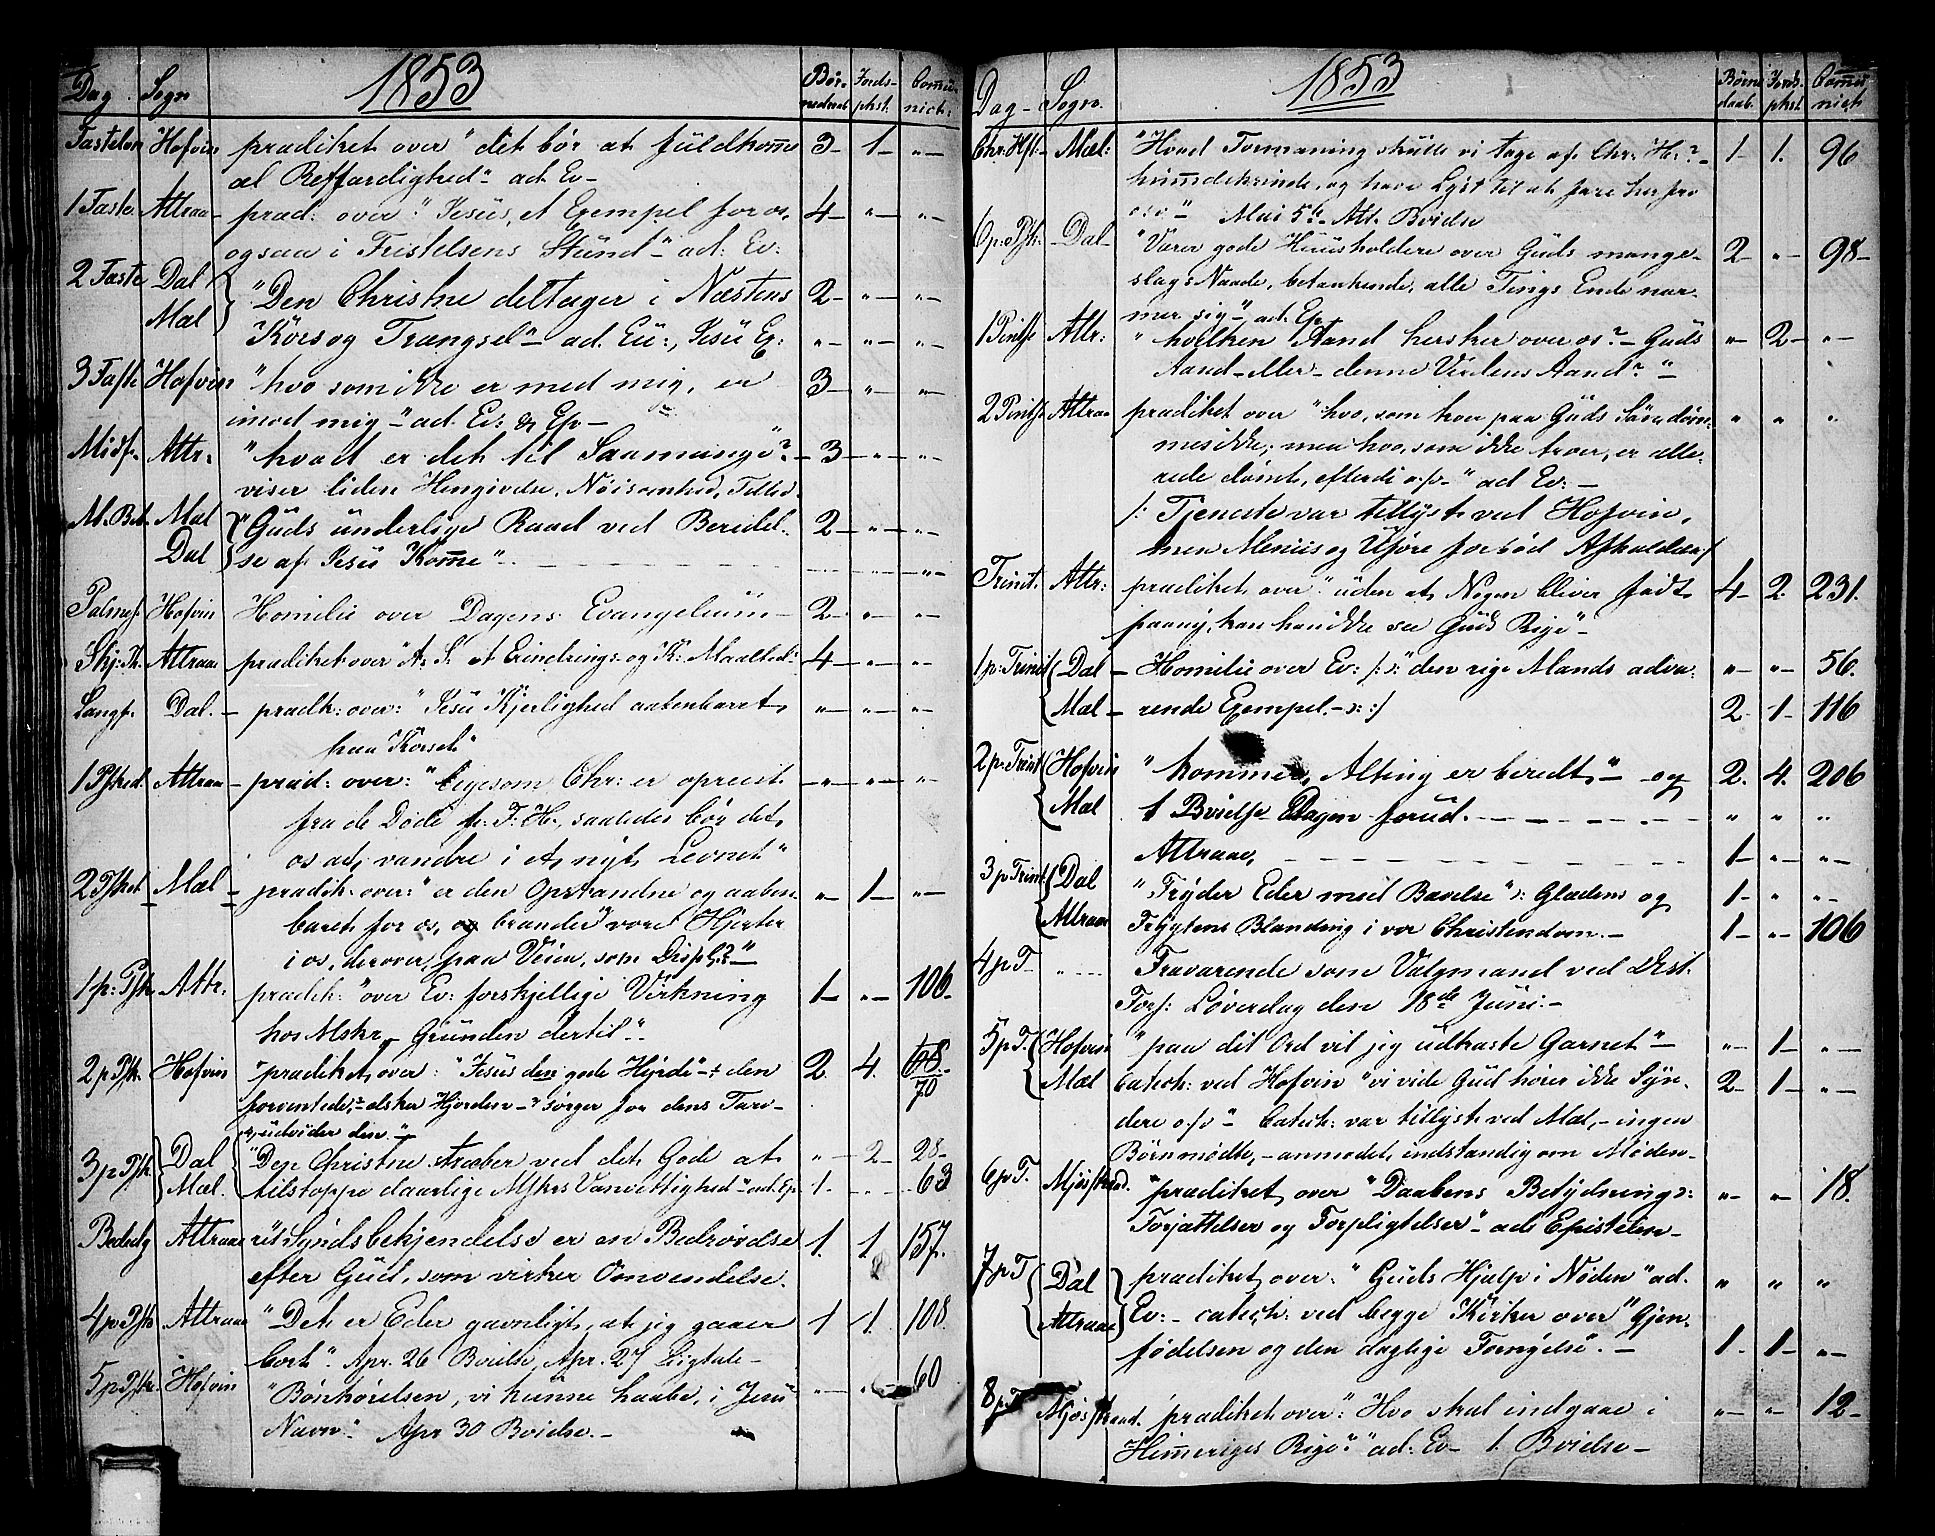 1853
Dag. Sogn Bør- Jords- Comu-
nedaab phst. nich:
Fastelvn Hofvin prædiket over "det bør at fuldkome 3 - 1 - " -
al Retfærdighed" ad. Ev -
1 Faste Attraa - præd: over: "Jesus, et Exempel for os, 4 - " - " -
ogsaa i Fristelsens Stund" - ad: Ev:
2 Faste Dal "Den Christne deltager i Næstens 2 - " - " -
Mæl Kors og Trængsel" - ad. Ev:, Jesu Ex: " - " - " -
3 Faste Hofvin "hvo som ikke er med mig, er 3 - " - " -
imod mig" - ad. Ev: & Ep -
Midf. Attr. "hvad er det til Saamange"? - 3 - " - " -
viser liden Hengivelse, Nøisomhed,
M. Bet. Mæl "Guds underlige Raad ved Beredel- 2 - " - " -
Dal se af Jesu Komme" - " -
Palmes. Hofvin Homilie over Dagens Evangelium - 2 - " - " -
Skj: T. Attraae prædiket over "A. S. et Erindrings- og K: Maaltid: 4 - " - " -
Langf. Dal. - prædk: over: "Jesu Kjerlighed aabenbaret " - " - " -
paa Korset"
1 Pshed. Attraa - præd: over: "ligesom Chr: er opreist - " - " - " -
fra de Døde f: F: H:, saaledes bør det
os at vandre i et nyt Levnet"
2 Pshed Mæl - prædik: over: "er den Opstandne og aaben- " - 1 - " -
baret for os, og brander vore Hjerter
i os, derover, paa Veien, som Discpl:?" -
1 p: Psk Attr. prædik: "over Ev: forskjellige Virkning 1 - " - 106 -
hos Mskr - Grunden dertil".
2 p Psk. Hofvin "prædiket over: "Jesus den gode Hyrde" - den 2. 4. 68.
forventede, - elsker Hjorden - sørger for dens Tarv - 70
& udvider den."
3 p Psk Dal "Den Christne stræber ved det Gode at " - 2 - 28 -
Mæl. tilstoppe daarlige Mskrs Vanvittighed" ad. Ep 1. " - 63
Bededg Attraae ret Syndsbekjendelse er en Bedrøvelse 1. 1. 157.
efter Gud, som virker Omvendelse.
4 p Psk Attraae "Det er Eder gavnligt, at jeg gaaer 1 1. 108.
bort". Apr. 26 Bvielse, Apr. 27 Ligtale -
5 p Psk. Hofvin "Bønhørelsen, vi kunne haabe, i Jesu " - " - 60
Navn". Apr 30 Bvielse. -
1853
Dag - Sogn. Børne Jords. Comu
daab. phst. nich
Chr: Hf: - Mæl: "Hvad Formaning skulle vi tage af Chr: Her:? - 1 - 1. 96
himelekrinde, og have Lyst til at fare her fra
osv" Mai 5te Att. Bvidse
6 p: Psk: - Dal - "Værer gode Huusholdere over Guds mange- 2 - " - 98 -
slags Naade, betænkende, alle Tings Ende nær-
mer sig" - ad. Ep
1 Pintse Attr: "hvilken Aand hersker over os? - Guds " - 2 - " -
Aand - eller - denne Verdens Aand? "
2 Pintse Attraae prædiket over "hvo, som troe paa Guds Søn døm- " " "
mes ikke; men hvo, som ikke troer, er alle-
rede dømt, efterdi osv" ad Ev: -
/: Tjeneste var tillyst ved Hofvin,
men Menius og Uføre forbød Afholdelsen/
Trinit. Attr: prædiket over: "uden at Nogen bliver født 4 - 2. 231.
paany, kan han ikke see Guds Rige" -
1 p: Trinit Dal - Homilie over Ev: /: o: "den rige Mands advar- " - " - 56.
Mæl - rende Exempel. - o: :/ 2. 1. 116
2 p: Trinit Hofvin "kommer, Alting er beredt" - og 2. 4. 206
Mæl 1 Bvielse Dagen forud. - " " "
Attraae, 1 - " - " -
3 p Trint. Dal "Fryder Eder med Bævelse" o: Glædens og 1 - " - " -
Attraae Frygtens Blanding i vor Christendom. - 1 - " - 106
4 p T " Fraværende som Valgmand ved Dist.
Forf: Løverdag den 18de Juni. -
5 p T. Hofvin "paa dit Ord vil jeg udkaste Garnet" - " - 1 - " -
Mæl catech: ved Hofvin "vi vide Gud hører ikke Syn- 2 - 1 - " -
dere osv" Catech: var tillyst ved Mæl, - ingen
Børn mødte, - anmodet, indstændig om Møden -
6 p T. Mjøsstrand. "prædiket over "Daabens Betydnings: " - " - 18.
Forjættelser og Forpligtelser" - ad: Epistelen -
7 p T Dal prædiket over: "Guds Hjelp i Nøden" ad. " " "
Attraae Ev: - catech: ved begge Kirker over "Gjen-
fødelsen og den daglige Fornyelse". - 1 - 1 - " -
8 p T Mjøsstrand. prædiket over: "Hvo skal indgaae i " - " - 12 -
Himmeriges Rige". " ad: Ev - 1. Bvidse -